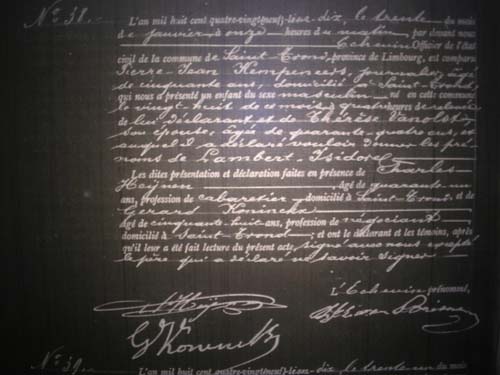 N.º 38.
L'an mil huit cent quatre-vingt-neuf-dix, le trente du mois
de janvier à onze heures du matin, par devant nous
Echevin Officier de l'état
civil de la commune de Saint-Trond, province de Limbourg, est comparu
Pierre Jean Kempeneers, journalier, âgé
de cinquante ans, domicilié à Saint-Trond,
qui nous a présenté un enfant du sexe masculin né en cette commune
le vingt huit de ce mois à quatre heures de relevée
de lui déclarant et de Thérèse Vanolst
son épouse, âgée de quarante-quatre ans, et
auquel il a déclaré vouloir donner les pré-
noms de Lambert-Isidore
Les dites présentation et déclaration faites en présence de Charles
Heynen âgé de quarante un
ans, profession de cabaretier domicilié à Saint-Trond, et de
Gerard Koninckx
âgé de cinquante-huit ans, profession de négociant
domicilié à Saint-Trond; et ont le déclarant et les témoins, après
qu'il leur a été fait lecture du présent acte, signé avec nous excepté
le père qui a déclaré ne savoir signer
L'Echevin prénommé,
N.º 39.
L'an mil huit cent quatre-vingt-dix, le trente un du mois